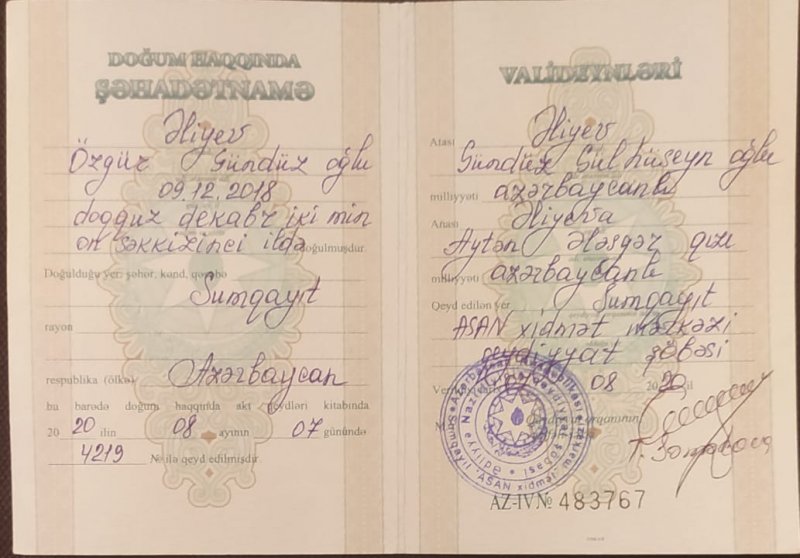 DOĞUM HAQQINDA
ŞƏHADƏTNAMƏ
Əliyev
Özgür Gündüz oğlu
09.12.2018
doqquz dekabr iki min
on səkkizinci ildə doğulmuşdur.
Doğulduğu yer: şəhər, kənd, qəsəbə
Sumqayıt
rayon
respublika (ölkə) Azərbaycan
bu barədə doğum haqqında akt qeydləri kitabında
20 20 ilin 08 ayının 07 günündə
4219 № ilə qeyd edilmişdir.
VALİDEYNLƏRİ
Atası Əliyev
Gündüz Gülhüseyn oğlu
milliyyəti azərbaycanlı
Anası Əliyeva
Aytən Ələsgər qızı
milliyyəti azərbaycanlı
Qeyd edilən yer Sumqayıt
ASAN xidmət mərkəzi
qeydiyyat şöbəsi
07 08 20 20 il
AZ-IV № 483767